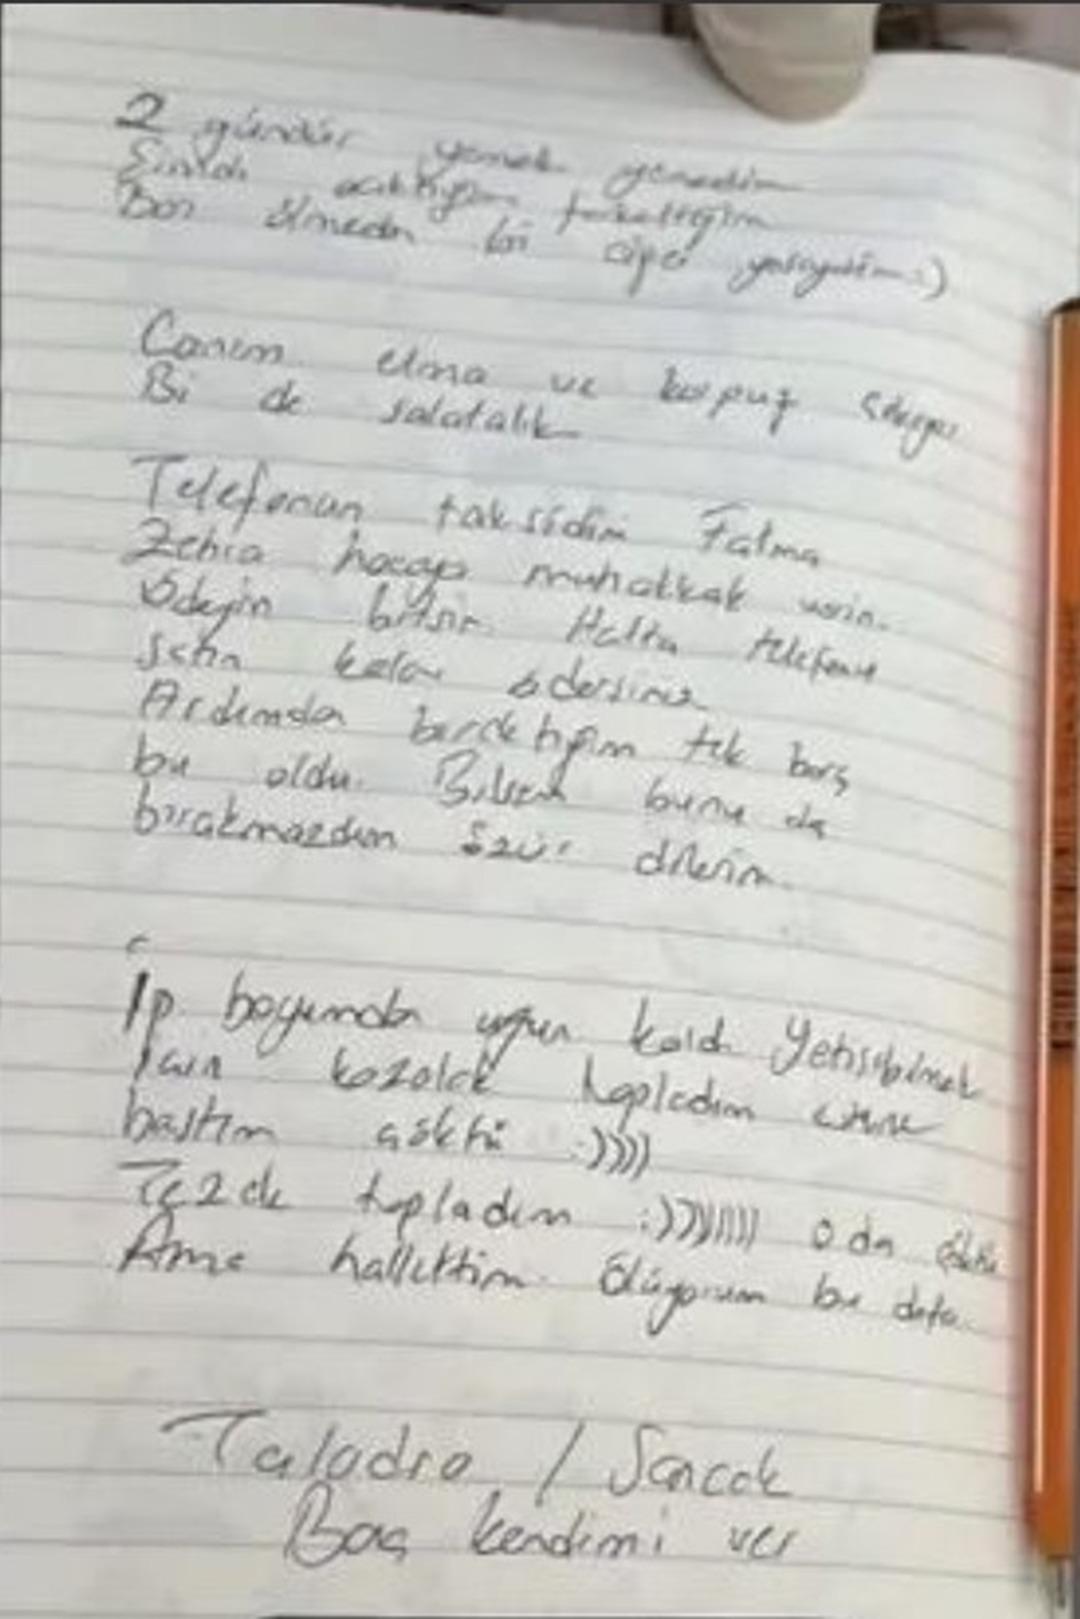 2 gündür yemek yemedim
Şimdi acıktığımı farkettiğim
Ben ölmeden bi çiğer yeseydim :)
Canım elma ve karpuz çekiyor
Bi de salatalık
Telefonun taksidini Fatma
Zehra hocaya muhakkak verin.
Ödeyin bitsin. Hatta telefonu
satın kalanı ödersiniz
Ardımda bıraktığım tek borç
bu oldu. Bilsem bunu da
bırakmazdım özür dilerim.
İp boyumda uzun kaldı Yetişebilmek
için kozalak topladım üstüne
bastım çöktü :))))
Tezek topladım :)))))))) o da çöktü
Ama hallettim. Ölüyorum bu defa.
Taladro / Sancak
Bana kendimi ver